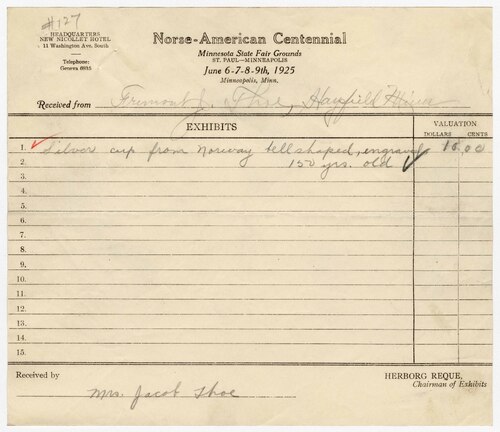 #127
HEADQUARTERS
NEW NICOLLET HOTEL
11 Washington Ave. South
Telephone:
Geneva 8835
Norse-American Centennial
Minnesota State Fair Grounds
ST. PAUL—MINNEAPOLIS
June 6-7-8-9th, 1925
Minneapolis, Minn.
Received from Fremont J. Thoe, Hayfield Minn
EXHIBITS
VALUATION
DOLLARS CENTS
1. ✓ Silver cup from Norway bell shaped, engraved 15.00
2. 150 yrs. old ✓
3.
4.
5.
6.
7.
8.
9.
10.
11.
12.
13.
14.
15.
Received by
Mrs. Jacob Thoe
HERBORG REQUE,
Chairman of Exhibits